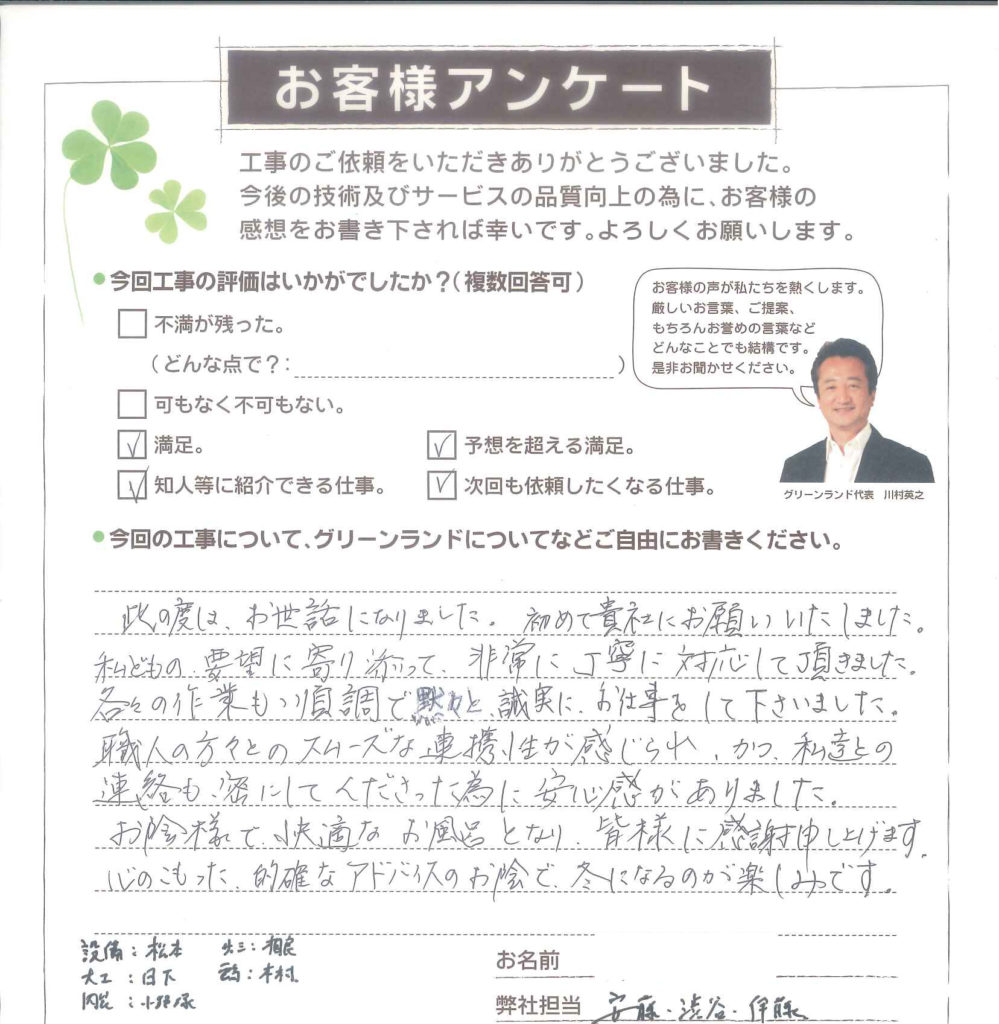 お客様アンケート
工事のご依頼をいただきありがとうございました。
今後の技術及びサービスの品質向上の為に、お客様の
感想をお書き下されば幸いです。よろしくお願いします。
●今回工事の評価はいかがでしたか?(複数回答可)
お客様の声が私たちを熱くします。
厳しいお言葉、ご提案、
もちろんお誉めの言葉など
どんなことでも結構です。
是非お聞かせください。
グリーンランド代表 川村英之
不満が残った。
(どんな点で?: )
可もなく不可もない。
満足。 予想を超える満足。
知人等に紹介できる仕事。 次回も依頼したくなる仕事。
●今回の工事について、グリーンランドについてなどご自由にお書きください。
此の度は、お世話になりました。初めて貴社にお願いいたしました。
私どもの要望に寄り添って、非常に丁寧に対応して頂きました。
各々の作業も順調で黙々と、誠実に、お仕事をして下さいました。
職人の方々とのスムーズな連携性が感じられ、かつ、私達との
連絡も密にしてくださった為に安心感がありました。
お陰様で、快適なお風呂となり、皆様に感謝申し上げます。
心のこもった、的確なアドバイスのお陰で、冬になるのが楽しみです。
設備:松本 :相良
大工:日下 :木村
内装:小野塚
お名前
弊社担当 安藤・渋谷・伊藤